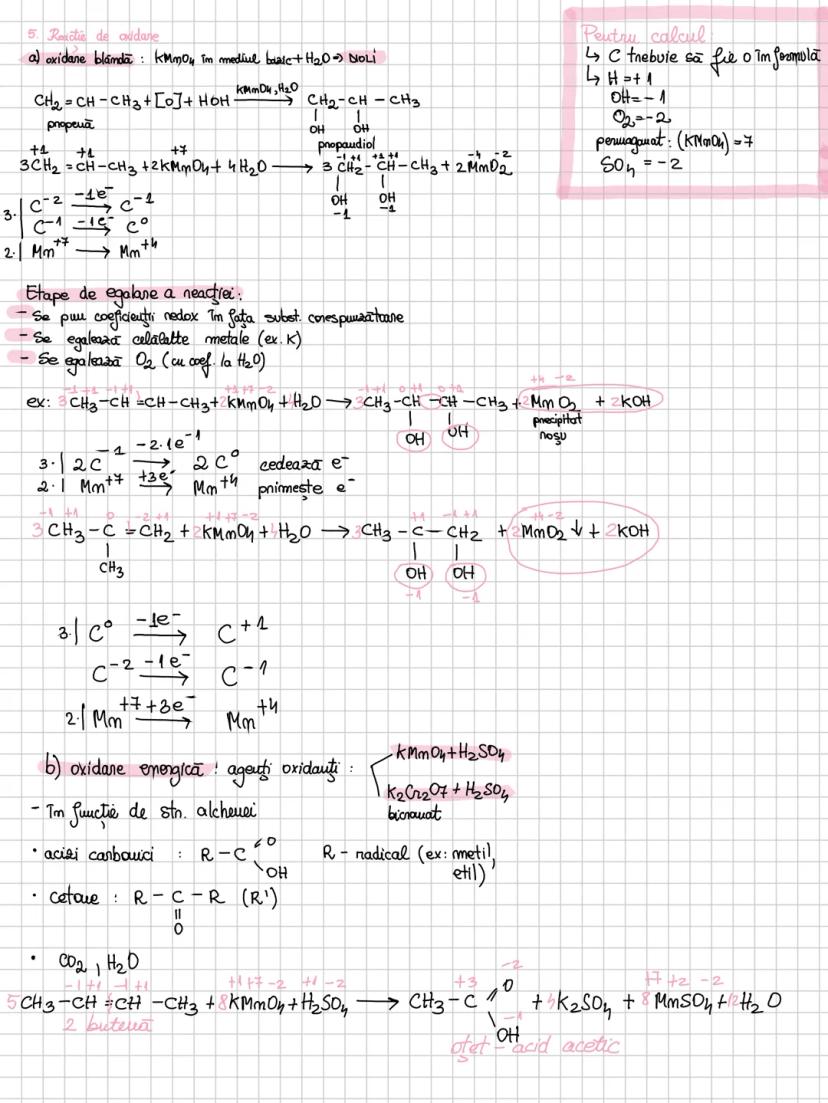 5. Reacție de oxidare
a) oxidare blândă : KMnO4 în mediul bazic + H2O => DIOLI
CH2 = CH - CH3 + [O] + HOH KMnO4, H2O → CH2 - CH - CH3
OH OH
propenă
propandiol
+1 +1 +7 -1+1 +1+1 -4 -2
3CH2 = CH - CH3 + 2KMnO4 + 4H2O → 3 CH2 - CH - CH3 + 2MnO2
OH OH
-1 -1
3. | C-2 -1e- → C-1
C-1 -1e- → C0
2. | Mn+7 → Mn+4
Pentru calcul:
↳ C trebuie să fie 0 în formulă
↳ H = +1
OH = -1
O2 = -2
permaganat : (KMnO4) = 7
SO4 = -2
Etape de egalare a reacției:
- Se pun coeficienții redox în fața subst. corespunzătoare
- Se egalează celălalte metale (ex. K)
- Se egalează O2 (cu coef. la H2O)
-1 +1 -1+1 +1+7-2 -1+1 0+1 0+1 +4 -2
ex: 3CH3 - CH = CH - CH3 + 2KMnO4 + 4H2O → 3CH3 - CH - CH - CH3 + 2MnO2 + 2KOH
OH OH
precipitat
noșu
3. | 2C-1 -2·1e-1 → 2C0 cedează e-
2. | Mn+7 +3e- → Mn+4 primește e-
-1 +1 0 -2+1 +1+7-2 +1 -1+1 +4-2
3CH3 - C = CH2 + 2KMnO4 + 4H2O → 3CH3 - C - CH2 + 2MnO2 ↓ + 2KOH
CH3 OH OH
-1 -1
3. | C0 -1e- → C+1
C-2 -1e- → C-1
2. | Mn+7 +3e- → Mn+4
b) oxidare energică : agenți oxidanți :
KMnO4 + H2SO4
K2Cr2O7 + H2SO4
bicromat
- în funcție de str. alchenei
• acizi carbonici : R - C O OH R - radical (ex: metil, etil)
• cetone : R - C - R (R')
O
• CO2, H2O
-1+1 -1+1 +1+7-2 +1 -2 +3 -2 +7 +2 -2
5CH3 - CH = CH - CH3 + 8KMnO4 + H2SO4 → CH3 - C O OH + 4K2SO4 + 8MnSO4 + 12H2O
-1
2 butenă
oțet - acid acetic